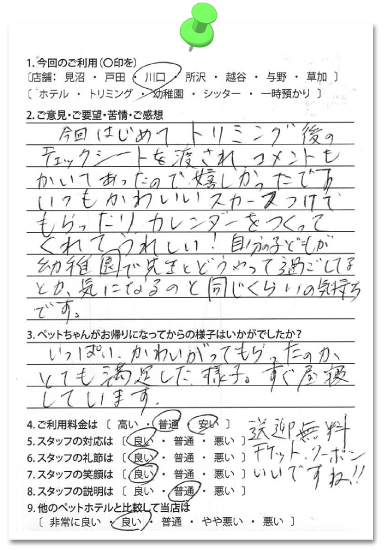 1. 今回のご利用(〇印を)
〔店舗: 見沼 ・ 戸田 ・ 川口 ・ 所沢 ・ 越谷 ・ 与野 ・ 草加 〕
〔 ホテル ・ トリミング ・ 幼稚園 ・ シッター ・ 一時預かり 〕
2. ご意見・ご要望・苦情・ご感想
今回はじめてトリミング後の
チェックシートを渡され、コメントも
かいてあったので嬉しかったです
いつもかわいいスカーフつけて
もらったり、カレンダーをつくって
くれてうれしい!自分の子どもが
幼稚園で先生とどうやって過ごしてる
とか、気になるのと同じくらいの気持ち
です。
3. ペットちゃんがお帰りになってからの様子はいかがでしたか?
いっぱい、かわいがってもらったのか、
とても満足した様子。すぐ
しています。
4. ご利用料金は〔 高い ・ 普通 ・ 安い 〕
5. スタッフの対応は〔 良い ・ 普通 ・ 悪い 〕
6. スタッフの礼節は〔 良い ・ 普通 ・ 悪い 〕
7. スタッフの笑顔は〔 良い ・ 普通 ・ 悪い 〕
8. スタッフの説明は〔 良い ・ 普通 ・ 悪い 〕
9. 他のペットホテルと比較して当店は
〔 非常に良い ・ 良い ・ 普通 ・ やや悪い ・ 悪い 〕
送迎無料
チケット、クーポン
いいですね!!